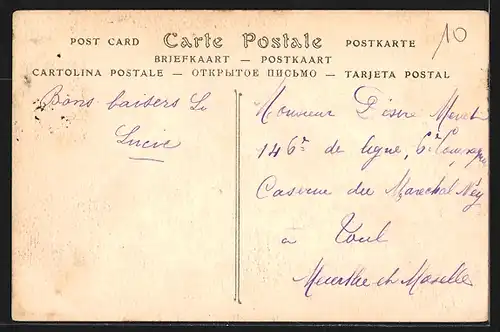 POST CARD Carte Postale POSTKARTE
10
BRIEFKAART — POSTKAART
CARTOLINA POSTALE — ОТКРЫТОЕ ПИСЬМО — TARJETA POSTAL
Bons baisers
Lucie
Monsieur
146e de ligne, 6e Compagnie
Caserne du Marechal Ney
à Toul
Meurthe et Moselle